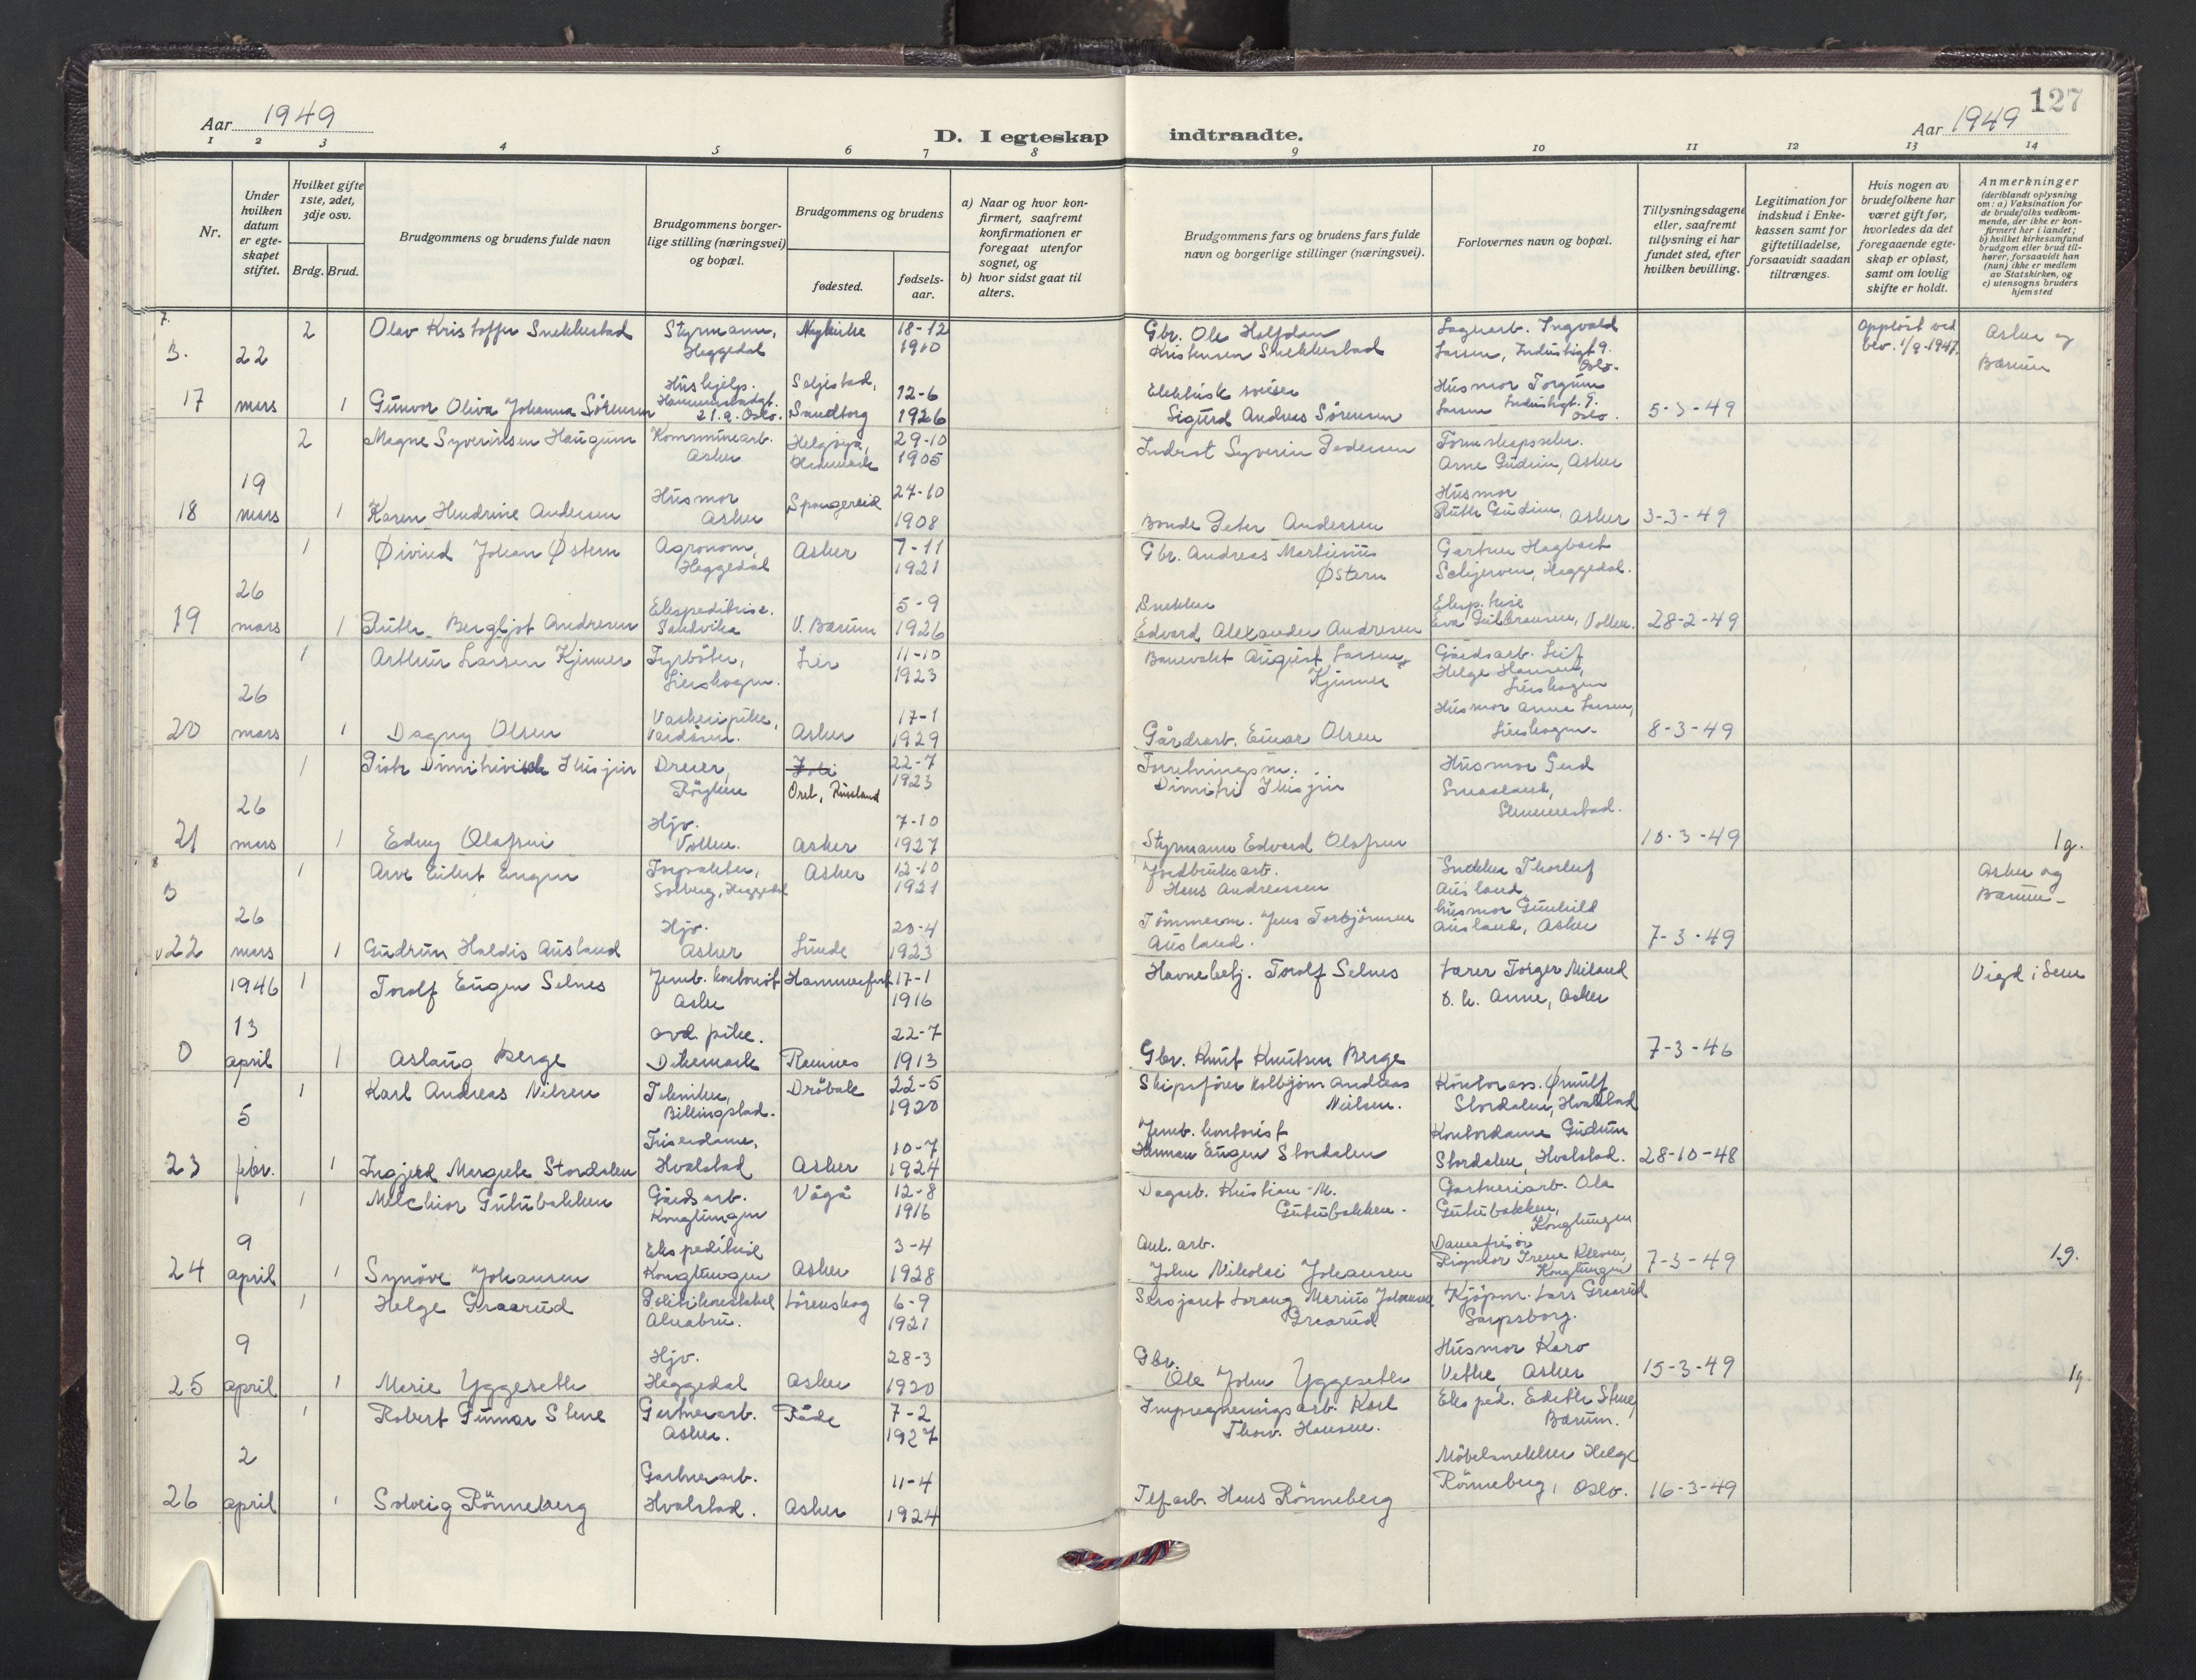 127
Aar 1949
D. I egteskap indtraadte.
Aar 1949
1 2 3 4 5 6 7 8 9 10 11 12 13 14
Nr.
Under hvilken datum er egte-skapet stiftet.
Hvilket gifte 1ste, 2det, 3dje osv.
Brdg. Brud.
Brudgommens og brudens fulde navn
Brudgommens borger-lige stilling (næringsvei) og bopæl.
Brudgommens og brudens
fødested.
fødsels-aar.
a) Naar og hvor kon-firmert, saafremt konfirmationen er foregaat utenfor sognet, og
b) hvor sidst gaat til alters.
Brudgommens fars og brudens fars fulde navn og borgerlige stillinger (næringsvei).
Forlovernes navn og bopæl.
Tillysningsdagene eller, saafremt tillysning ei har fundet sted, efter hvilken bevilling.
Legitimation for indskud i Enke-kassen samt for giftetilladelse, forsaavidt saadan tiltrænges.
Hvis nogen av brudefolkene har været gift før, hvorledes da det foregaaende egte-skap er opløst, samt om lovlig skifte er holdt.
Anmerkninger
(deriblandt oplysning om: a) Vaksination for de brudefolks vedkom-mende, der ikke er kon-firmert her i landet; b) hvilket kirkesamfund brudgom eller brud til-hører, forsaavidt han (hun) ikke er medlem av Statskirken, og c) utensogns bruders hjemsted
7.
3. 22 2 Olav Kristoffer Snekkestad Styrmann, Heggedal Nykirke 18-12 1910 Gbr. Ole Halfdan Kristensen Snekkestad Lagerarb. Ingvald Larsen, Industrigt 9. Oslo. Oppløst ved bev. 1/9-1947. Asker og Bærum
17 mars 1 Gunvor Oliva Johanna Sørensen Hushjelp. 21.a. Oslo. Seljestad, Sandtorg 12-6 1926 Elektrisk sveiser Sigurd Andreas Sørensen Husmor Torgunn Larsen Industrigt. 9. Oslo. 5-3-49
2 Magne Syverinsen Haugum Kommunearb. Asker Helgøya, Hedmark 29-10 1905 Inderst Syverin Pedersen Formskapssekr. Arne Gudim, Asker
19
18 mars 1 Karen Hendrine Andersen Husmor Asker Spangereid 27-10 1908 Bonde Peter Andersen Husmor Ruth Gudim, Asker 3-3-49
1 Øivind Johan Østern Agronom, Heggedal Asker 7-11 1921 Gbr. Andreas Martinius Østern Gartner Hagbart Schjerven, Heggedal.
26
19 mars 1 Ruth Bergljot Andresen Ekspeditrise. Sandvika V. Bærum 5-9 1926 Snekker Edvard Alexander Andresen Eksp.trise Eva Gulbransen, Vollen. 28-2-49
1 Arthur Larsen Kjinner Fyrbøter, Lierskogen. Lier 11-10 1923 Banevakt August Larsen Kjinner Gårdsarb. Leif Helge Hansen, Lierskogen
26
20 mars 1 Dagny Olsen Vaskeripike, Vardåsen. Asker 17-1 1929 Gårdsarb. Einar Olsen Husmor Anna Larsen, Lierskogen. 8-3-49
1 Piotr Dimitrivich Dreier, Røyken Orel, Russland 22-7 1923 Forretningsm. Dimitri Husmor Gerd Slemmestad.
26
21 mars 1 Edny Olafsen Hjv. Vollen. Asker 7-10 1927 Styrmann Edvard Olafsen 10-3-49 1g.
8
3 1 Arve Eilert Engen Torpakter, Solberg, Heggedal Asker 12-10 1921 Jordbruksarb. Hans Andreassen Snekker Thorleif Ausland Asker og Bærum
26
22 mars 1 Gudrun Haldis Ausland Hjv. Asker Lunde 20-4 1923 Tømmerm. Jens Torbjørnsen Ausland. husmor Gunhild Ausland, Asker 7-3-49
1946 1 Torolf Eugen Selnes Jernb. kontorist Asker Hammerfest 17-1 1916 Havnebetj. Torolf Selnes Lærer Torger Miland o. h. Anne, Asker Vigd i Sem
13
0 april 1 Aslaug Berge avd. pike. Dikemark Rennes 22-7 1913 Gbr. Knut Knutsen Berge 7-3-46
1 Karl Andreas Nilsen Tekniker, Billingstad. Drøbak 22-5 1920 Skipsfører Kolbjørn Andreas Nielsen. Kontorass. Ørnulf Stordalen, Hvalstad
5
23 febr. 1 Ingjerd Margrete Stordalen Friserdame, Hvalstad Asker 10-7 1924 Jernb. kontorist Herman Eugen Stordalen Kontordame Gudrun Stordalen, Hvalstad. 28-10-48
1 Melchior Gutubakken Gårdsarb. Konglungen Vågå 12-8 1916 Dagarb. Kristian M. Gutubakken. Gartneriarb. Ola Gutubakken, Konglungen
9
24 april 1 Synøve Johansen Ekspeditrise Konglungen Asker 3-4 1928 Anl. arb. John Nikolai Johansen Damefrisør Rigmor Irene Kleven, Konglungen 7-3-49 1g.
1 Helge Graarud Politikonstabel Alnabru. Lørenskog 6-9 1921 Sersjant Lorang Marius Johansen Graarud Kjøpm. Lars Graarud Sarpsborg.
9
25 april 1 Marie Yggeseth Hjv. Heggedal Asker 28-3 1920 Gbr. Ole John Yggeseth Husmor Karo Vethe, Asker 15-3-49 1g
1 Robert Gunnar Stene Gartnerarb. Asker. Råde 7-2 1927 Impregneringsarb. Karl Thorv. Hansen. Eksped. Edith Stene, Bærum.
2
26 april 1 Solveig Rønneberg Gartnerarb. Hvalstad. Asker 11-4 1924 Tlf.arb. Hans Rønneberg Møbelsnekker Helge Rønneberg, Oslo. 16-3-49